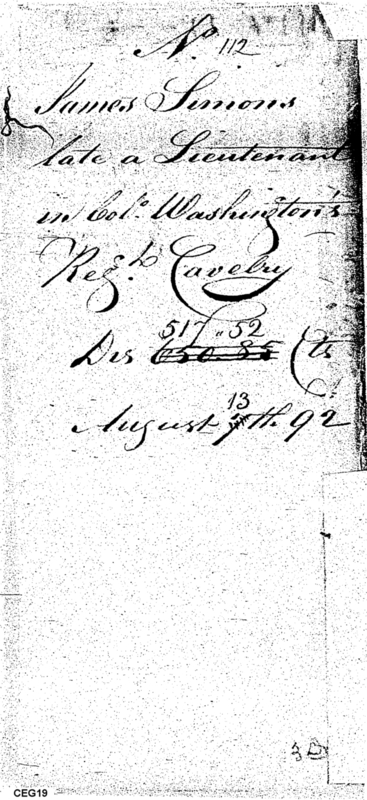 No. 112
James Simons
late a Lieutenant
in Colo. Washington's
Regt. Cavelry
517 " 52
Drs 650.85 Cts
13
August 7th. 92
CEG19